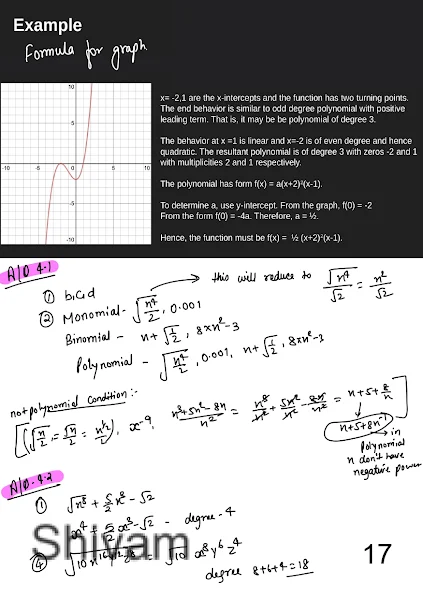 Example
Formula for graph
x= -2,1 are the x-intercepts and the function has two turning points.
The end behavior is similar to odd degree polynomial with positive
leading term. That is, it may be be polynomial of degree 3.
The behavior at x =1 is linear and x=-2 is of even degree and hence
quadratic. The resultant polynomial is of degree 3 with zeros -2 and 1
with multiplicities 2 and 1 respectively.
The polynomial has form f(x) = a(x+2)²(x-1).
To determine a, use y-intercept. From the graph, f(0) = -2
From the form f(0) = -4a. Therefore, a = ½.
Hence, the function must be f(x) = ½ (x+2)²(x-1).
10
5
-10 -5 0 5 10
-10
A/O 4.1
① b,c,d
this will reduce to √x⁴/√2 = x²/√2
② Monomial - √(x⁴/2), 0.001
Binomial - x+√(1/2), 8xx²-3
Polynomial - √(x⁴/2), 0.001, x+√(1/2), 8xx²-3
not polynomial condition :-
x⁻⁹, (x³+5x²-8x)/x² =
x+5+8x⁻¹
in
polynomial
x don't have
negative power
A/O-4.2
①
x⁴ + 5/2 x³ - √2 - degree - 4
④
√10 x⁸y⁶z⁴
degree 8+6+4=18
Shivam
17